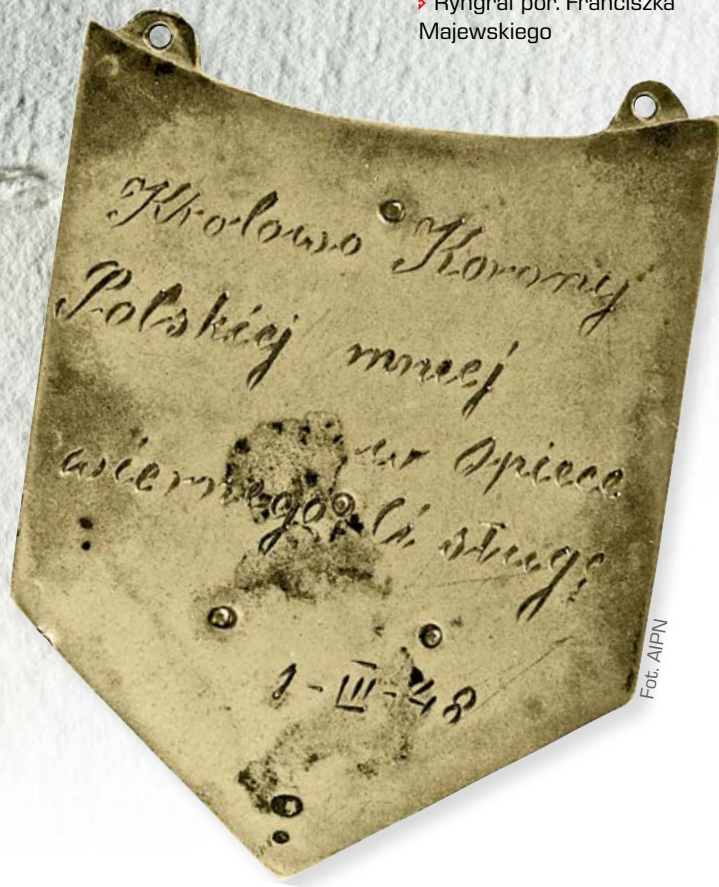 Ryngraf por. Franciszka
Majewskiego
Krolowo Korony
Polskiej mniej
w opiece
wiernego Ci sługę
1-III-48
Fot. AIPN